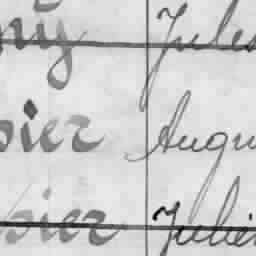 ny Jules
sier Augu
sier Julien